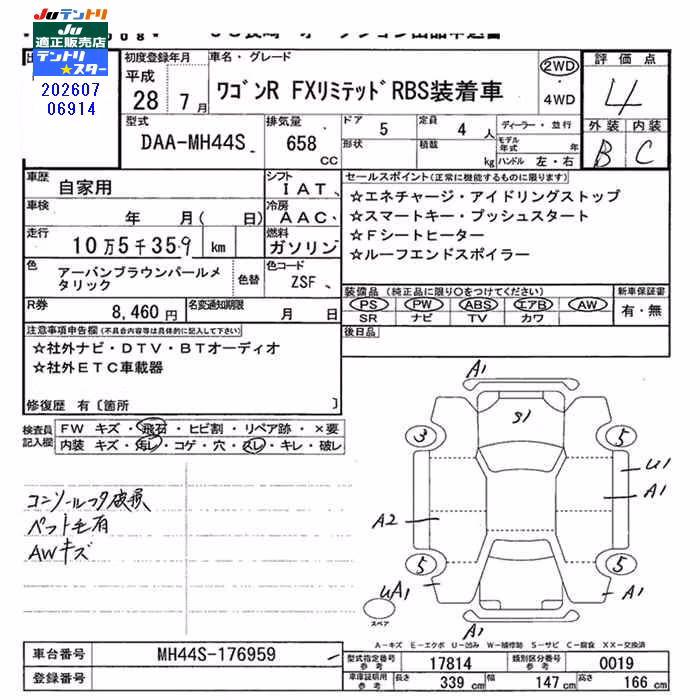 Juテントリ
Ju
適正販売店
テントリ
★スター
202607
06914
初度登録年月
平成
28年7月
車名・グレード
ワゴンR FXリミテッド RBS装着車
2WD
・
4WD
評価点
4
外装 内装
B C
型式
DAA-MH44S
排気量
658
CC
ドア 5
形状
定員 4 人
積載 kg
ディーラー・並行
モデル年式 年
ハンドル 左・右
車歴
自家用
シフト
IAT
車検
年 月( 日)
冷房
AAC
走行
10万5千359 km
燃料
ガソリン
色
アーバンブラウンパールメタリック
色替
色コード
ZSF
R券
8,460円
名変通知期限
月 日
セールスポイント(正常に機能するものに限ります)
☆エネチャージ・アイドリングストップ
☆スマートキー・プッシュスタート
☆Fシートヒーター
☆ルーフエンドスポイラー
装備品(純正品に限り○をつけてください)
PS PW ABS エアB AW
SR ナビ TV カワ
新車保証書
有・無
後日品
注意事項申告欄(不具合内容等は具体的に記入して下さい)
☆社外ナビ・DTV・BTオーディオ
☆社外ETC車載器
修復歴 有〔箇所 〕
検査員
記入欄
FW キズ・飛石・ヒビ割・リペア跡・×要
内装 キズ・汚レ・コゲ・穴・スレ・キレ・破レ
コンソールフタ破損
ペット毛有
AWキズ
A1
S1
3
5
U1
A1
A2
5
5
UA1
A1
A1
スペア
A-キズ E-エクボ U-凹み W-補修跡 S-サビ C-腐食 XX-交換済
車台番号
MH44S-176959
登録番号
型式指定番号
参考
17814
類別区分番号
参考
0019
車庫証明用
参考
長さ 339 cm
幅 147 cm
高さ 166 cm